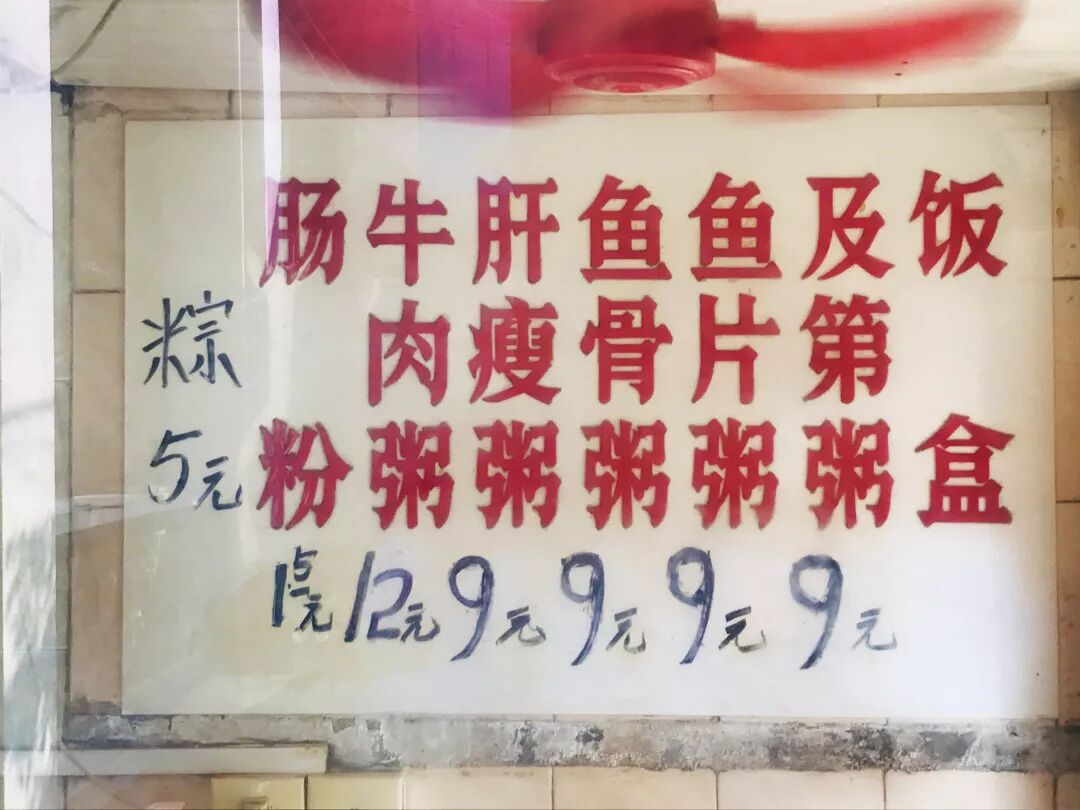 粽
5元
肠粉
15元
牛肉粥
12元
肝瘦粥
9元
鱼骨粥
9元
鱼片粥
9元
及第粥
9元
饭盒